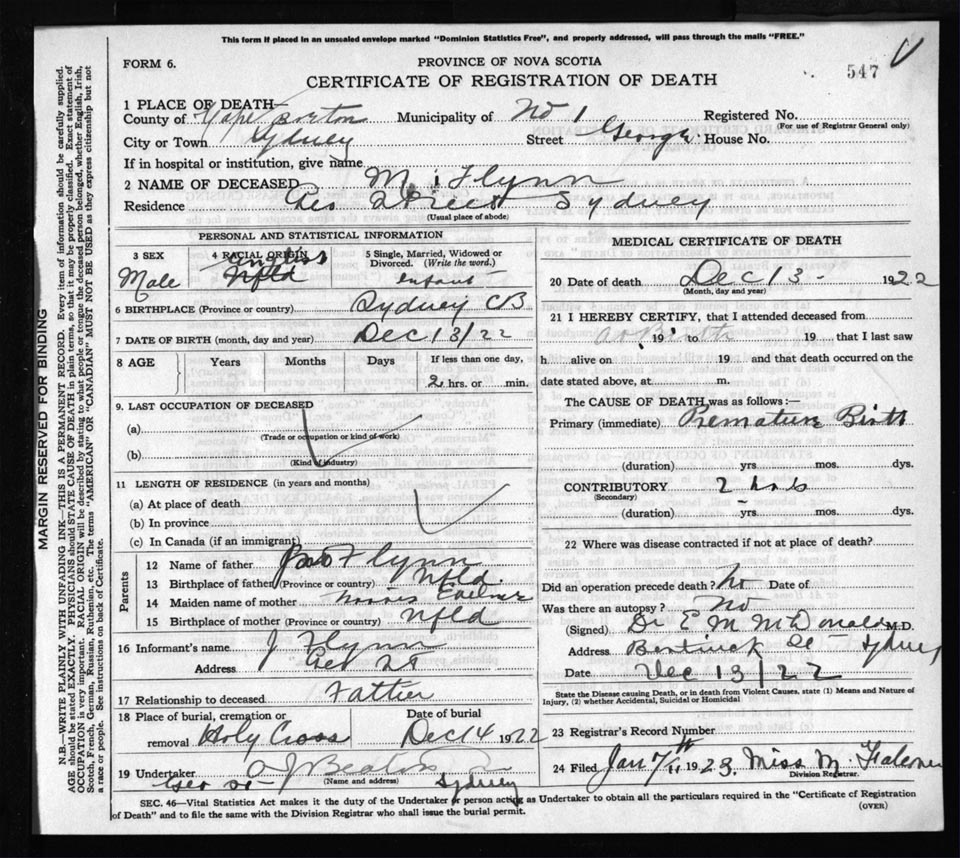 This form if placed in an unsealed envelope marked "Dominion Statistics Free", and properly addressed, will pass through the mails "FREE."
FORM 6.
PROVINCE OF NOVA SCOTIA
CERTIFICATE OF REGISTRATION OF DEATH
547
1 PLACE OF DEATH—
County of Cape Breton Municipality of No 1 Registered No.
(For use of Registrar General only)
City or Town Sydney Street George House No.
If in hospital or institution, give name
2 NAME OF DECEASED M Flynn
Residence Geo Street Sydney
(Usual place of abode)
PERSONAL AND STATISTICAL INFORMATION
3 SEX
Male
4 RACIAL ORIGIN
English
Nfld
5 Single, Married, Widowed or Divorced. (Write the word.)
infant
6 BIRTHPLACE (Province or country) Sydney CB
7 DATE OF BIRTH (month, day and year) Dec 13/22
8 AGE Years Months Days If less than one day,
2 hrs. or min.
9. LAST OCCUPATION OF DECEASED
(a)
(Trade or occupation or kind of work)
(b)
(Kind of industry)
11 LENGTH OF RESIDENCE (in years and months)
(a) At place of death
(b) In province
(c) In Canada (if an immigrant)
Parents
12 Name of father Flynn
13 Birthplace of father (Province or country) Nfld.
14 Maiden name of mother
15 Birthplace of mother (Province or country) Nfld
16 Informant's name J Flynn
Address Geo St
17 Relationship to deceased Father
18 Place of burial, cremation or removal Holy Cross
Date of burial
Dec 14 1922
19 Undertaker A J Beaton
(Name and address)
Geo St Sydney
MEDICAL CERTIFICATE OF DEATH
20 Date of death Dec 13 - 1922
(Month, day and year)
21 I HEREBY CERTIFY, that I attended deceased from
at Birth 19 to 19 that I last saw
h alive on 19 and that death occurred on the
date stated above, at m.
The CAUSE OF DEATH was as follows:—
Primary (immediate) Premature Birth
(duration) yrs mos. dys.
CONTRIBUTORY
(Secondary)
2
(duration) yrs. mos. dys.
22 Where was disease contracted if not at place of death?
Did an operation precede death? No Date of
Was there an autopsy? No
(Signed) Dr E M McDonald M.D.
Address Bentinck St Sydney
Date Dec 13/22
State the Disease causing Death, or in death from Violent Causes, state (1) Means and Nature of Injury, (2) whether Accidental, Suicidal or Homicidal
23 Registrar's Record Number
24 Filed Jan 1923. Miss M.
Division Registrar.
SEC. 46—Vital Statistics Act makes it the duty of the Undertaker or person acting as Undertaker to obtain all the particulars required in the "Certificate of Registration
of Death" and to file the same with the Division Registrar who shall issue the burial permit.
(OVER)
MARGIN RESERVED FOR BINDING
N.B.—WRITE PLAINLY WITH UNFADING INK—THIS IS A PERMANENT RECORD. Every item of information should be carefully supplied.
AGE should be stated EXACTLY. PHYSICIANS should STATE CAUSE OF DEATH in plain terms, so that it may be properly classified. Exact statement of
OCCUPATION is very important. RACIAL ORIGIN will be described by stating to what people or tongue the deceased person belonged, whether English, Irish,
Scotch, French, German, Russian, Ruthenian, etc. The terms "AMERICAN" OR "CANADIAN" MUST NOT BE USED as they express citizenship but not
a race or people. See instructions on back of Certificate.